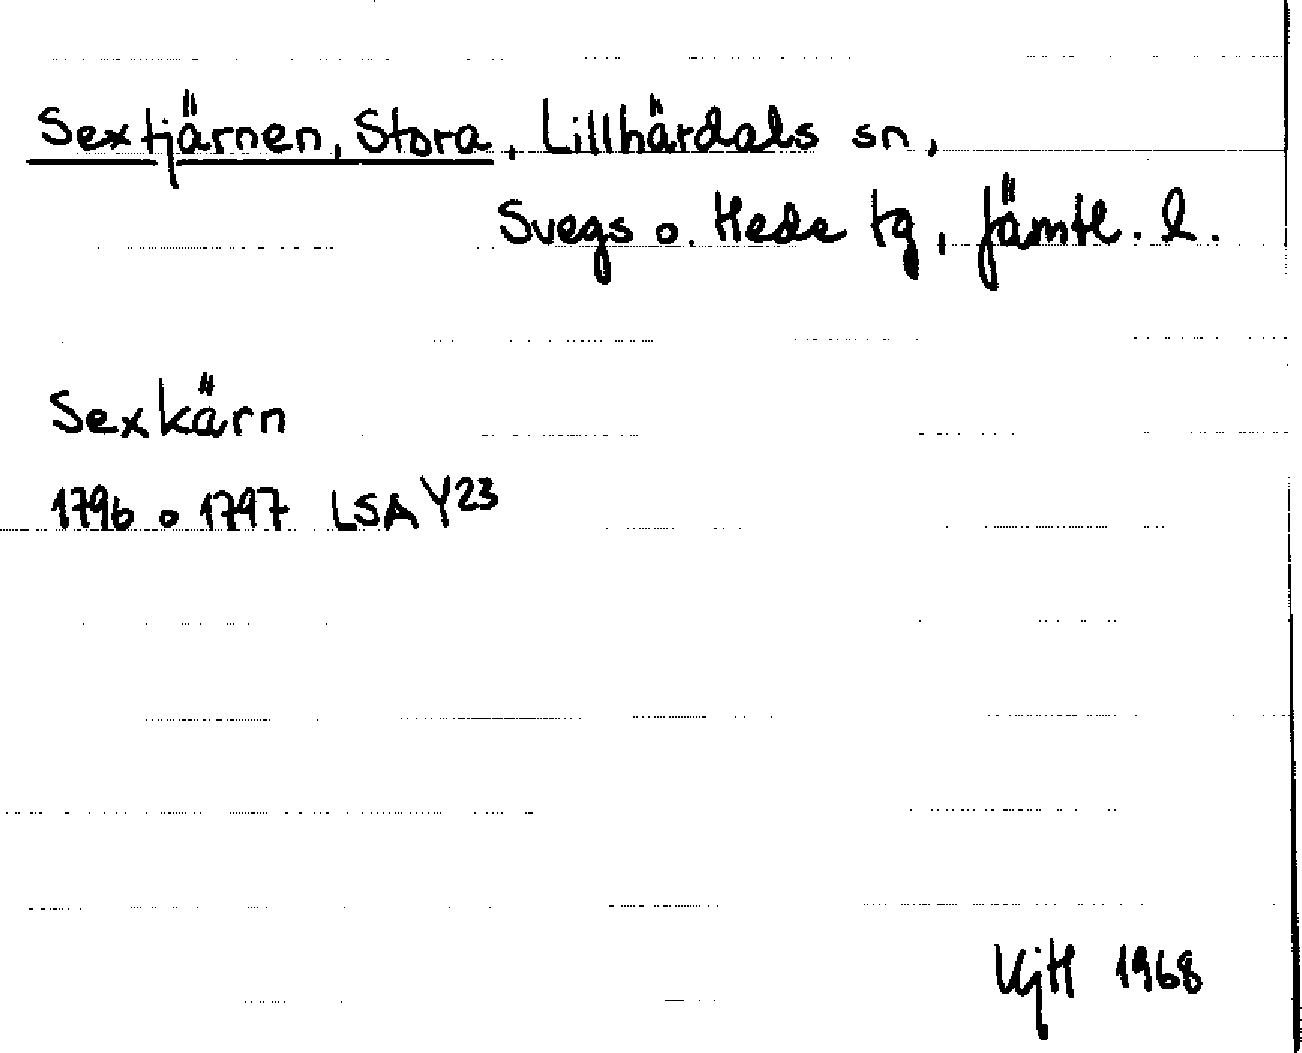 Sextjärnen, Stora, Lillhärdals sn,
Svegs o. Hede tg, Jämtl. l.
Sexkärn
1796 o 1797 LSA Y23
1968